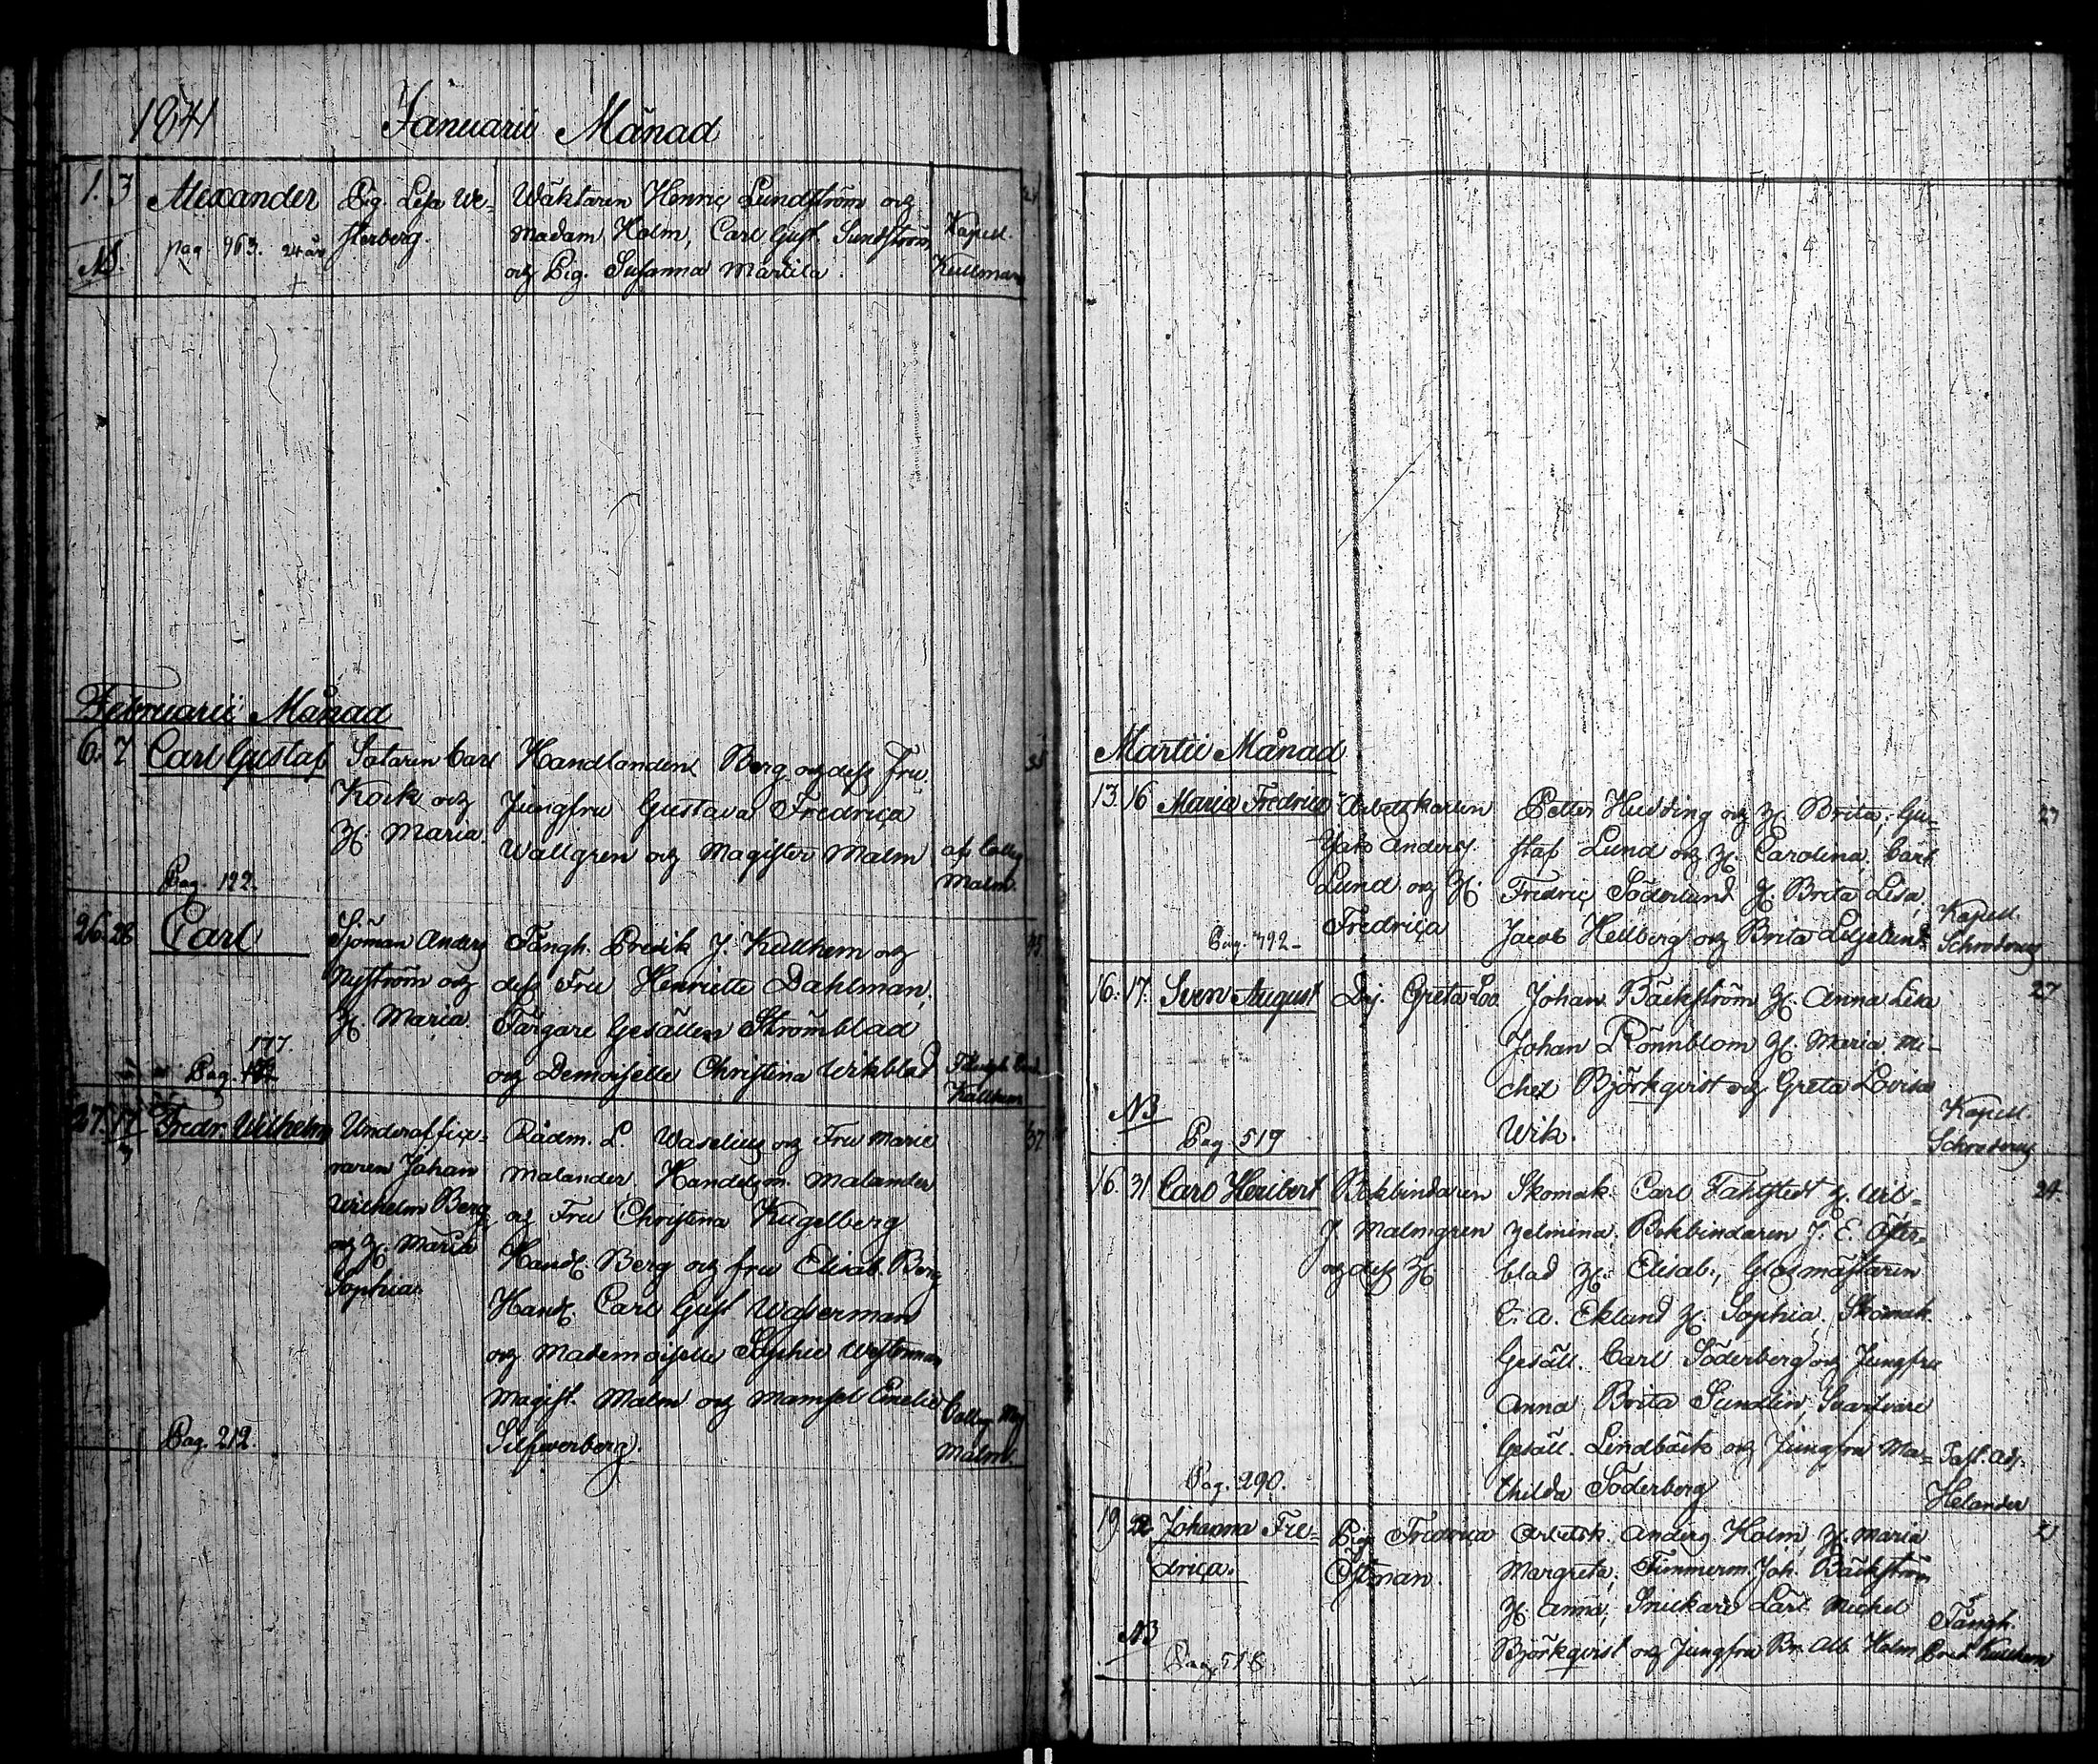 1841 Januarii Månad
1. 3 Alexander Pig. Lisa We- Wäktaren Henric Lundström och
sterberg. Madam Holm, Carl Gust. Sundström Kapell.
NB. pag. 963. 24 år och Pig. Susanna Martila. Kullman
+
Februarii Månad
6. 7 Carl Gustaf Carl Handlanden Berg och dess Fru. 35
Kock och Jungfru Gustava Fredrica
H. Maria. Wallgren och Magister Malm
Pag. 122. Malm.
26. 28 Carl Sjöman Anders Tängh. Predik J. Kullhem och 35
Nyström och dess Fru Henriette Dahlman,
H. Maria. Färgare Gesällen Strömblad
177.
Pag. och Demoiselle Christina Wikblad
Kullhem
27. 17 Fredr. Wilhelm Underoffice- Rådm. L. Waselius och Fru Marie 37
raren Johan Malander, Handelsm. Malander
Wilhelm Berg och Fru Christina Kugelberg
och H. Maria Handl. Berg och fru Elisab. Berg
Sophia. Handl. Carl Gust Wasserman
och Mademoiselle Sophie
Magist. Malm och Mamsel Emelie
Pag. 212. Silfwerberg. Malm.
Martii Månad
13. 16 Maria Fredrica Arbetskarlen Petter Hudding och H. Brita; Gu- 27
Anders staf Lund och H. Carolina, Carl
Lund och H. Fredric Söderlund H. Brita Lisa, Kapell.
Pag. 792- Fredrica Jacob Hellberg och Brita Liljelund Schroderus
16. 17. Sven August Greta Loo Johan Bäckström H. Anna Lisa 27
Johan Rönnblom H. Maria, Mi-
chel Björkqvist och Greta Lovisa Kapell.
NB Pag 519 Wik. Schroderus
16. 31 Carl Heribert Bokbindaren Skomak. Carl Fahlstedt H. Wil- 24.
J. Malmgren helmina. Bokbindaren J. E. Öster-
och dess H. blad H. Elisab., Glasmästaren
C. A. Eklund H. Sophia, Skomak.
Gesäll. Carl Söderberg och Jungfru
Anna Brita Sundlin, Svarfvare
Gesäll. Lindbäck och Jungfru Ma- Past. Adj.
Pag. 290. thilda Söderberg Helander
19 22 Johanna Fre- Pig. Fredrica Arbetsk. Anders Holm, H. Maria 21
drica. Östman. Margreta, Timmerm. Joh. Bäckström
H. Anna, Snickare Lärl. Michel Tängh.
NB Pag. 518 Björkqvist och Jungfru Br. Alb. Holm Pred. Kullhem